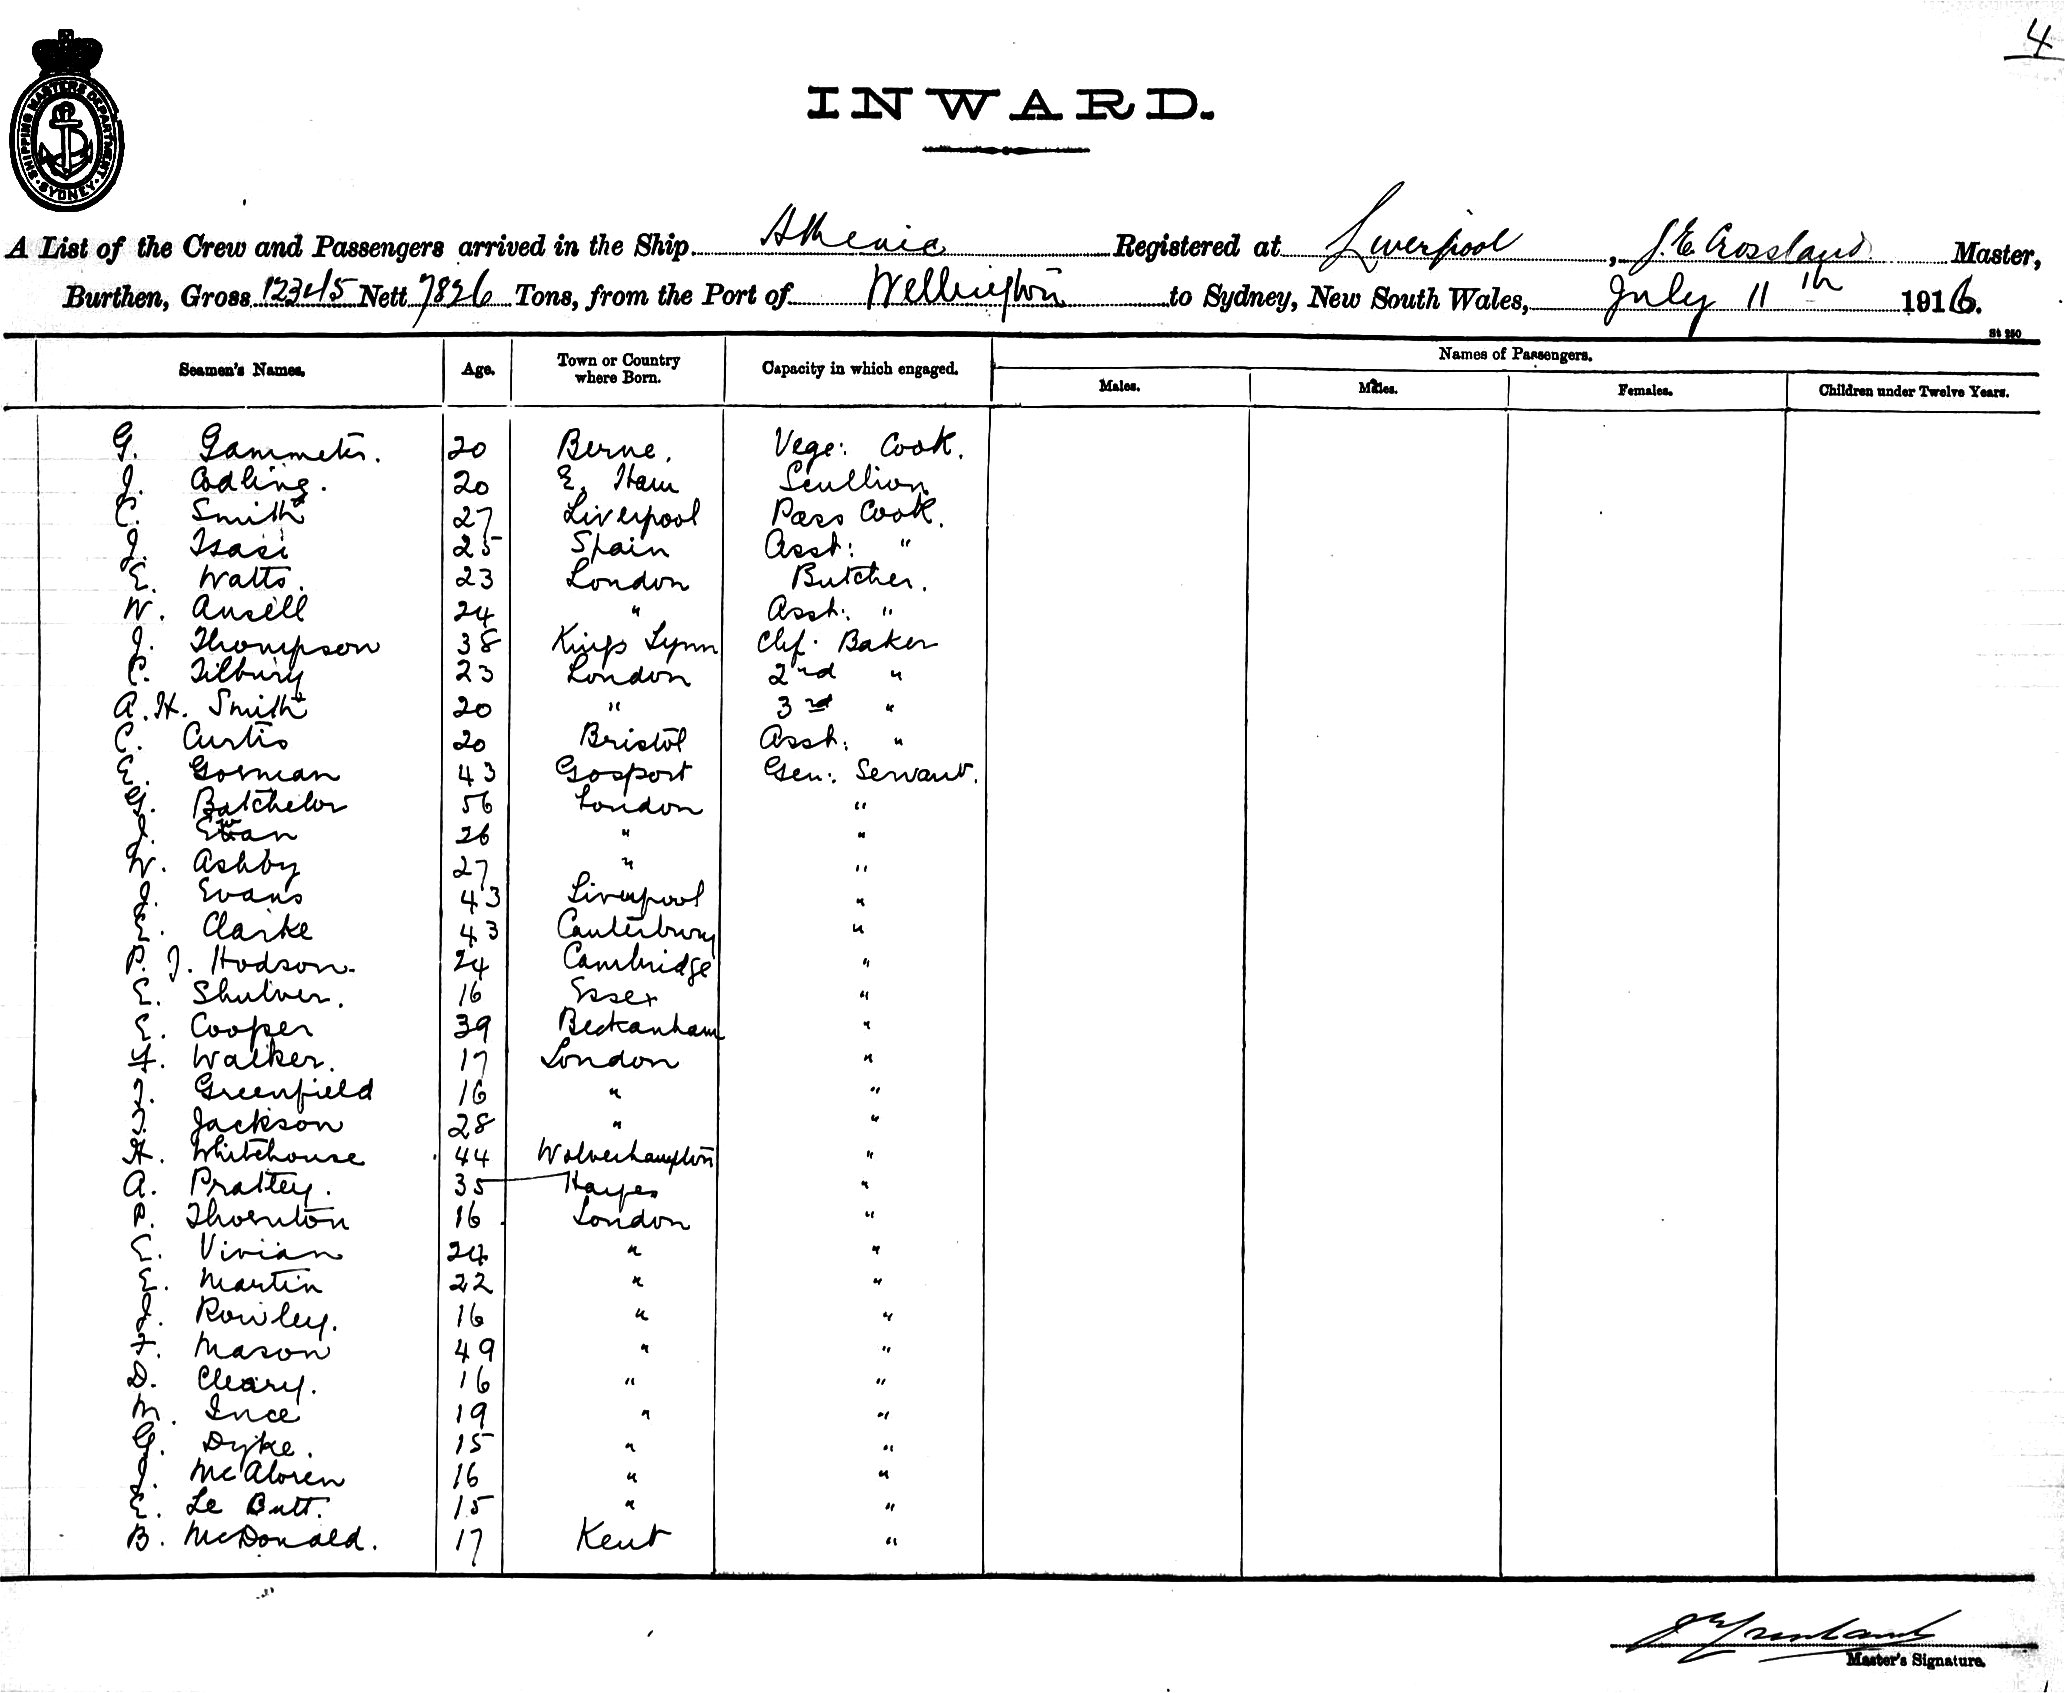 4
SHIPPING MASTERS DEPARTMENT
SYDNEY
INWARD.
A List of the Crew and Passengers arrived in the Ship Athenic Registered at Liverpool, J. E. Crossland Master,
Burthen, Gross 12345 Nett 7826 Tons, from the Port of Wellington to Sydney, New South Wales, July 11th 1916.
St 250
Seamen's Names. Age. Town or Country where Born. Capacity in which engaged. Names of Passengers.
Males. Males. Females. Children under Twelve Years.
G. Gammeter. 20 Berne. Vege: Cook.
J. Codling. 20 E. Ham Scullion
C. Smith 27 Liverpool Pass Cook.
J. Isasi 25 Spain Asst: "
E. Watts. 23 London Butcher.
W. Ansell 24 " Asst: "
J. Thompson 38 Kings Lynn Chf. Baker
C. Tilbury 23 London 2nd "
A. H. Smith 20 " 3rd "
C. Curtis 20 Bristol Asst: "
E. Gorman 43 Gosport Gen: Servant.
G. Batchelor 56 London "
J. Ewan 26 " "
W. Ashby 27 " "
J. Evans 43 Liverpool "
E. Clarke 43 Canterbury "
P. J. Hodson. 24 Cambridge "
E. Shulver. 16 Essex "
E. Cooper 39 Beckanham "
H. Walker. 17 London "
J. Greenfield 16 " "
Jackson 28 " "
H. Whitehouse 44 Wolverhampton "
A. Prattey. 35 Hayes "
P. Thornton 16 London "
C. Vivian 24 " "
E. Martin 22 " "
J. Rowley. 16 " "
F. Mason 49 " "
D. Cleary. 16 " "
M. Ince 19 " "
G. Dyke. 15 " "
J. McAloren 16 " "
E. Le Butt. 15 " "
B. McDonald. 17 Kent "
Master's Signature.